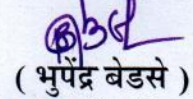 ( भुपेंद्र बेडसे )